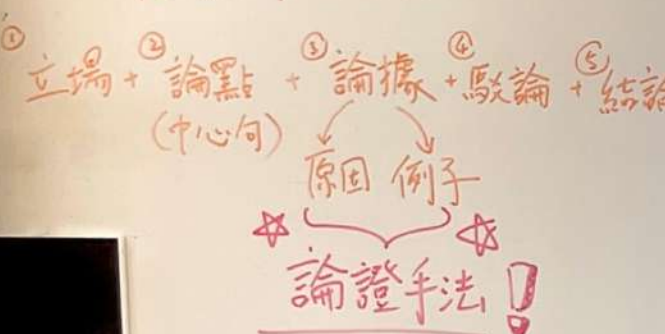 ① 立場 + ② 論點 + ③ 論據 + ④ 駁論 + ⑤ 結論
(中心句)
原因 例子
論證手法!